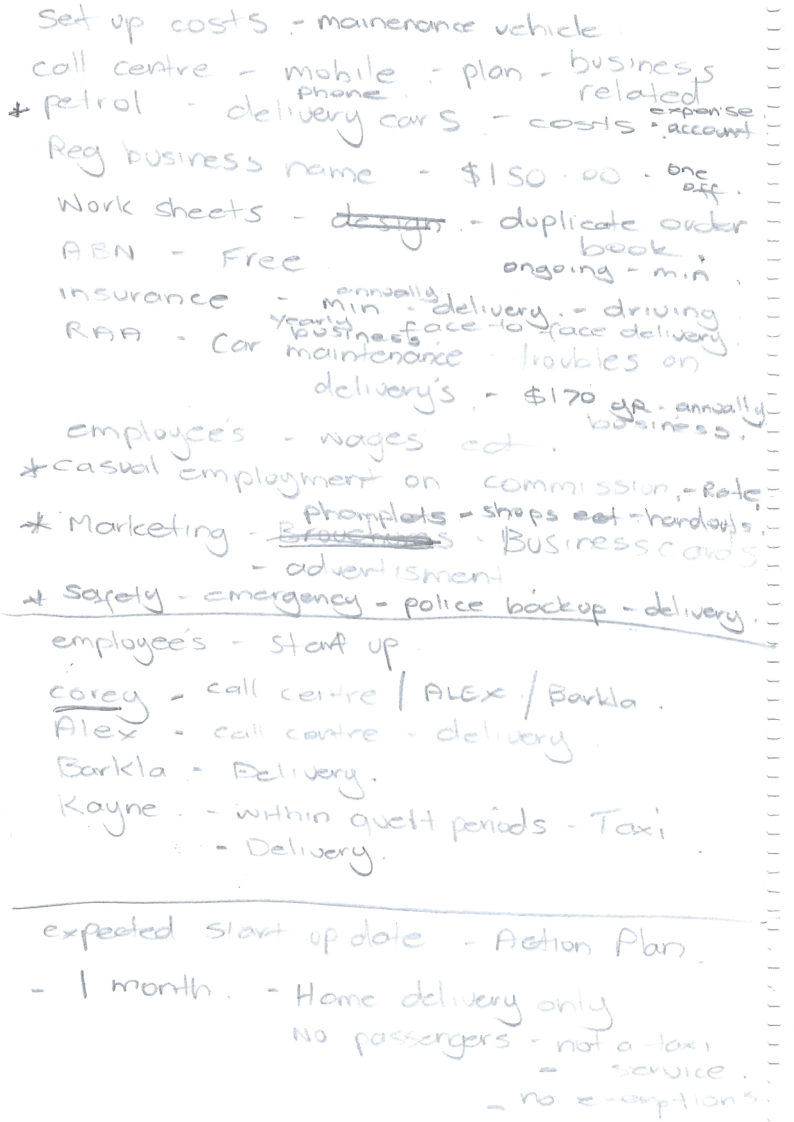 Set up costs - mainenance vehicle
call centre - mobile phone - plan - business related
* petrol - delivery cars - costs - expense account
Reg business name - $150.00 - one off.
Work sheets - design - duplicate order book
ABN - Free ongoing - min.
insurance - annually min - delivery - driving
yearly business face-to face delivery
RAA - Car maintenance - troubles on delivery's - $170 yR - annually business.
employee's - wages ect.
* casual employment on commission - Rate.
* Marketing - phamplets - shops ect - handouts.
Business cards
- advertisment
* Safety - emergency - police backup - delivery.
employee's - Start up
corey - call centre / ALEX / Barkla.
Alex - call centre - delivery
Barkla - Delivery.
Kayne - within quett periods - Taxi
- Delivery.
expected Start up date - Action Plan
- 1 month. - Home delivery only
No passengers - not a taxi
- service.
- no exemptions.